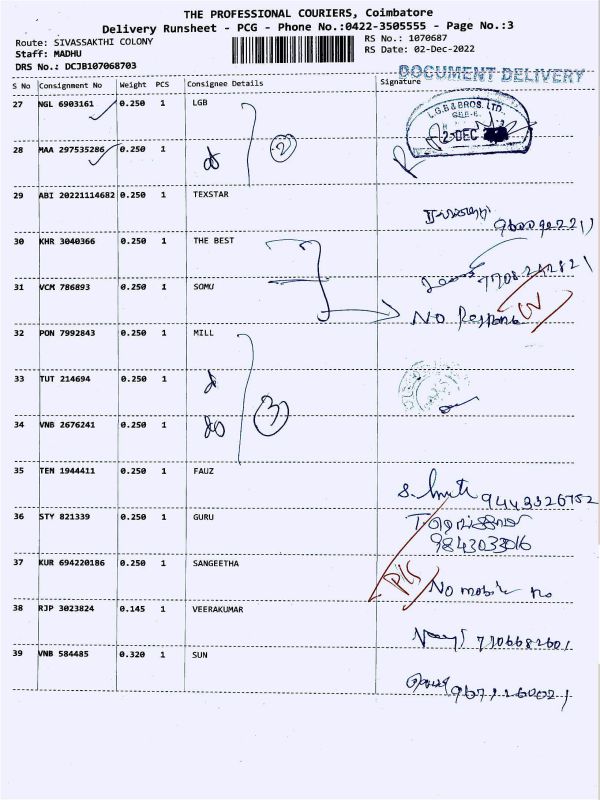 THE PROFESSIONAL COURIERS, Coimbatore
Delivery Runsheet - PCG - Phone No.:0422-3505555 - Page No.:3
Route: SIVASSAKTHI COLONY RS No.: 1070687
Staff: MADHU RS Date: 02-Dec-2022
DRS No.: DCJB107068703
DOCUMENT DELIVERY
S No Consignment No Weight PCS Consignee Details Signature
27 NGL 6903161 0.250 1 LGB
L.G.B & BROS. LTD.
2-DEC
28 MAA 297535286 0.250 1
2
29 ABI 20221114682 0.250 1 TEXSTAR
30 KHR 3040366 0.250 1 THE BEST
31 VCM 786893 0.250 1 SOMU
No Response
32 PON 7992843 0.250 1 MILL
33 TUT 214694 0.250 1
3
34 VNB 2676241 0.250 1
35 TEN 1944411 0.250 1 FAUZ
9443326752
36 STY 821339 0.250 1 GURU
9843033016
37 KUR 694220186 0.250 1 SANGEETHA
No mobile no
38 RJP 3023824 0.145 1 VEERAKUMAR
39 VNB 584485 0.320 1 SUN